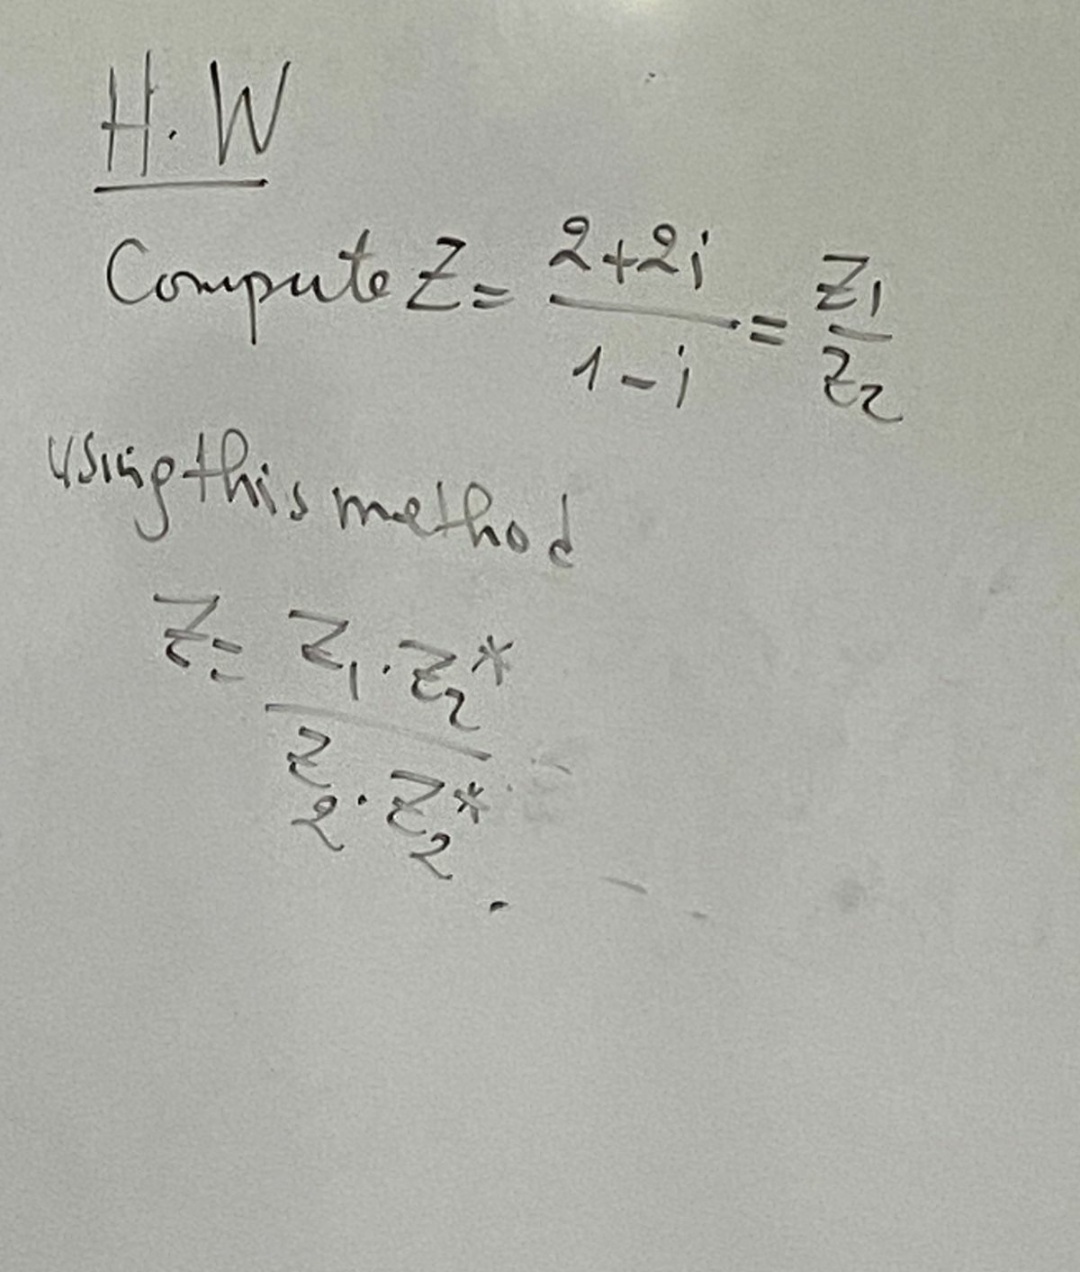 H.W
Compute Z = 2+2i / 1-i = Z1 / Z2
using this method
Z = Z1 . Z2* / Z2 . Z2*